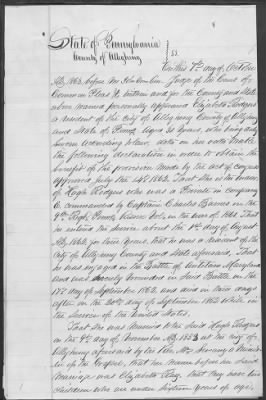 State of Pennsylvania
County of Allegheny } SS.
On this 7th day of October
AD, 1863. before me Judge of the Court of
Common Pleas in and for the County and State
above named personally appeared Elizabeth Rodgers
a resident of the City of Allegheny County of Allegheny
and State of Penna Aged years, who being duly
sworn according to law, doth on her oath make
the following declaration in order to obtain the
benefit of the provision made by the act of Congress
approved July the 14th 1862. That she is the widow
of Hugh Rodgers who was a Private in company
C commanded by Captain Charles Barnes in the
9th Regt, Penna, Reserve in the war of 1861. That
he entered the service about the day of August
AD, 186 for three years, that he was a resident of the
City of Allegheny County and State aforesaid, That
he was engaged in the Battle of Antietam Maryland
and was severely wounded in said Battle on the
17th day of September 1862, and died in two days
after on the day of September 1862 while in
the service of the United States.
That she was married to the said Hugh Rodgers
on the 9th day of November AD, 185 at the City of
Allegheny aforesaid by the Rev, Mr. a Minister
of the Gospel, that her name before her said
marriage was Elizabeth that they have
children who are under sixteen years of age.